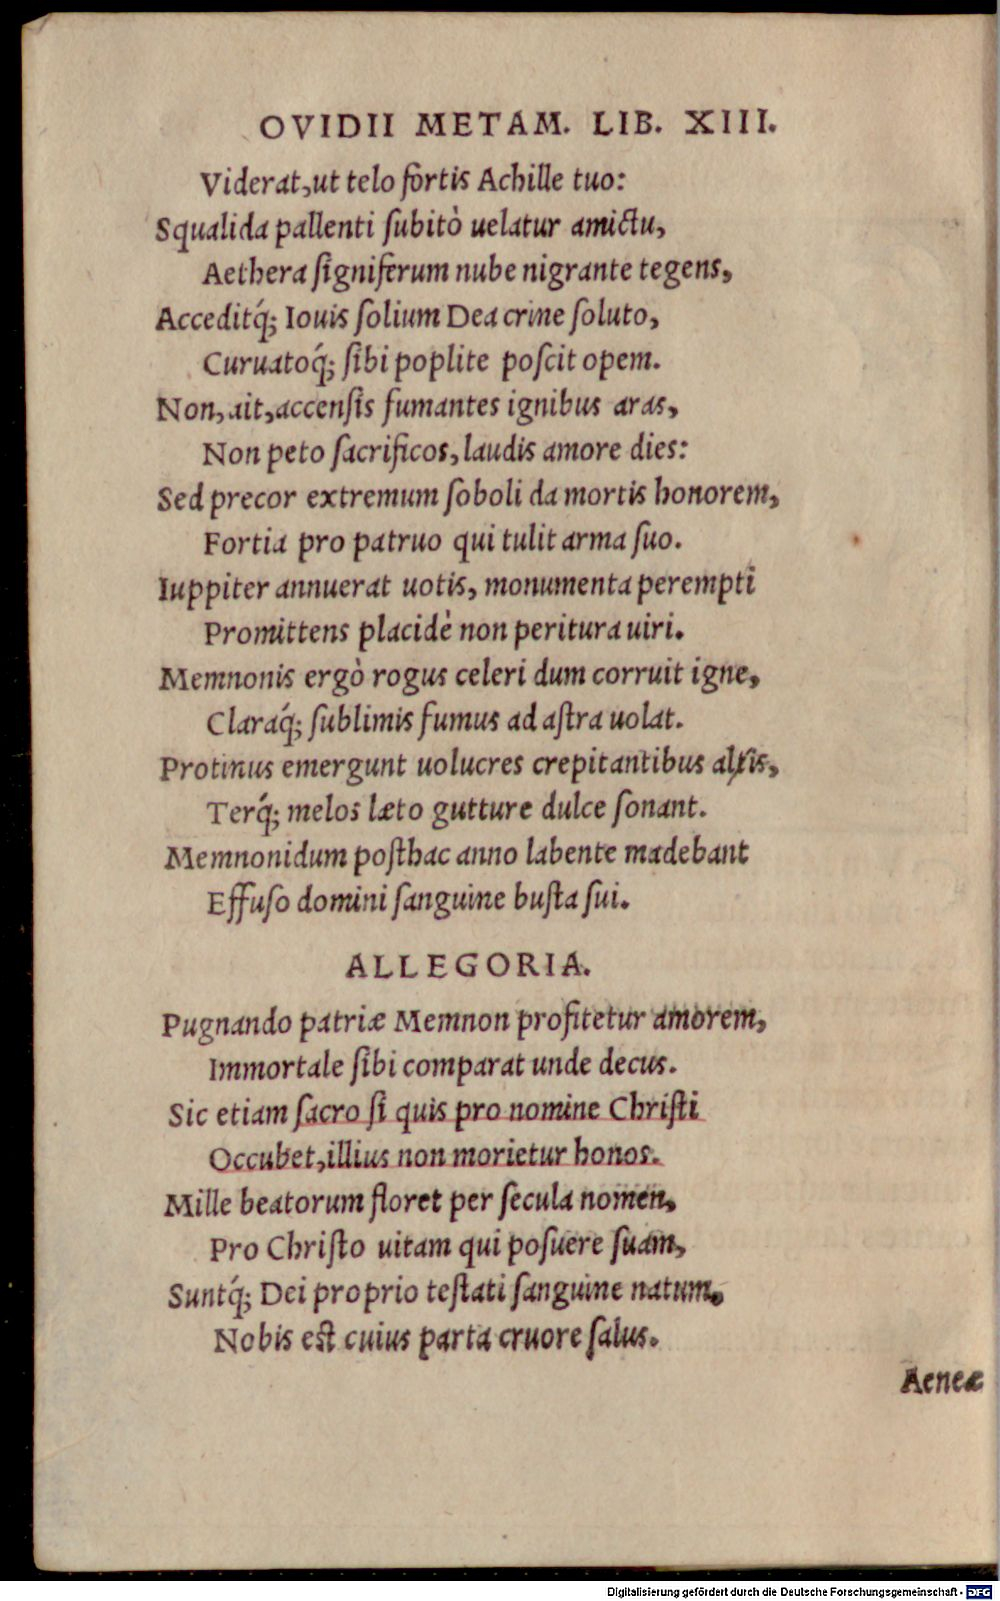 OVIDII METAM. LIB. XIII.
Viderat, ut telo fortis Achille tuo:
Squalida pallenti subitò uelatur amictu,
Aethera signiferum nube nigrante tegens,
Acceditq́; Iouis solium Dea crine soluto,
Curuatoq́; sibi poplite poscit opem.
Non, ait, accensis fumantes ignibus aras,
Non peto sacrificos, laudis amore dies:
Sed precor extremum soboli da mortis honorem,
Fortia pro patruo qui tulit arma suo.
Iuppiter annuerat uotis, monumenta perempti
Promittens placidè non peritura uiri.
Memnonis ergò rogus celeri dum corruit igne,
Claraq́; sublimis fumus ad astra uolat.
Protinus emergunt uolucres crepitantibus alis,
Terq́; melos læto gutture dulce sonant.
Memnonidum posthac anno labente madebant
Effuso domini sanguine busta sui.
ALLEGORIA.
Pugnando patriæ Memnon profitetur amorem,
Immortale sibi comparat unde decus.
Sic etiam sacro si quis pro nomine Christi
Occubet, illius non morietur honos.
Mille beatorum floret per secula nomen,
Pro Christo uitam qui posuere suam,
Suntq́; Dei proprio testati sanguine natum,
Nobis est cuius parta cruore salus.
Aeneæ
Digitalisierung gefördert durch die Deutsche Forschungsgemeinschaft - DFG